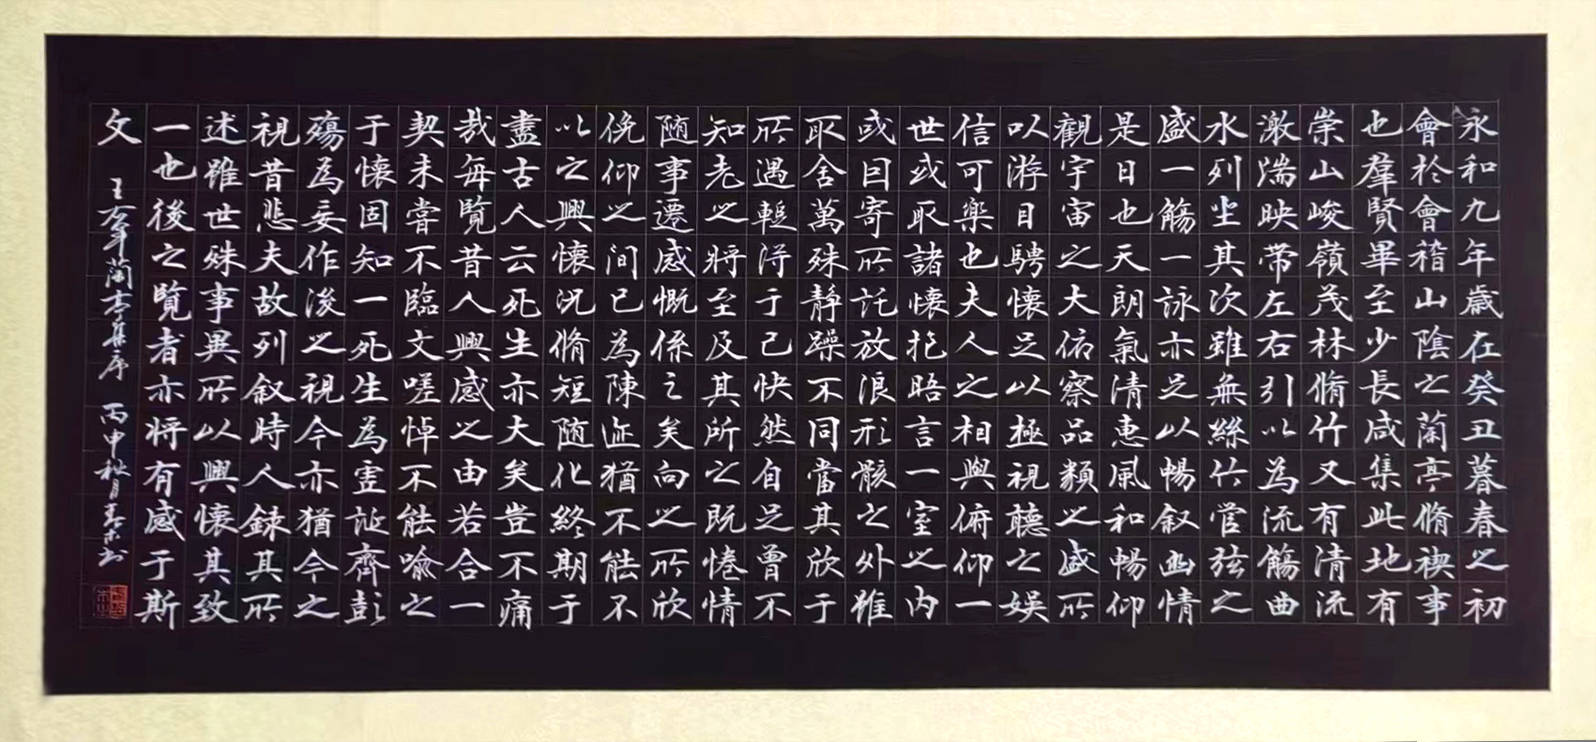 永和九年歲在癸丑暮春之初
會於會稽山陰之蘭亭脩禊事
也羣賢畢至少長咸集此地有
崇山峻嶺茂林脩竹又有清流
激湍映帶左右引以為流觴曲
水列坐其次雖無絲竹管弦之
盛一觴一詠亦足以暢叙幽情
是日也天朗氣清惠風和暢仰
觀宇宙之大俯察品類之盛所
以游目騁懷足以極視聽之娛
信可樂也夫人之相與俯仰一
世或取諸懷抱晤言一室之內
或因寄所託放浪形骸之外雖
取舍萬殊静躁不同當其欣于
所遇蹔得于己快然自足曾不
知老之將至及其所之既惓情
随事遷感慨係之矣向之所欣
俛仰之間已為陳迹猶不能不
以之興懷況脩短随化終期于
盡古人云死生亦大矣豈不痛
哉每覽昔人興感之由若合一
契未嘗不臨文嗟悼不能喻之
于懷固知一死生為虛誕齊彭
殤為妄作後之視今亦猶今之
視昔悲夫故列叙時人録其所
述雖世殊事異所以興懷其致
一也後之覽者亦將有感于斯
文 王右軍蘭亭集序 丙申秋月书